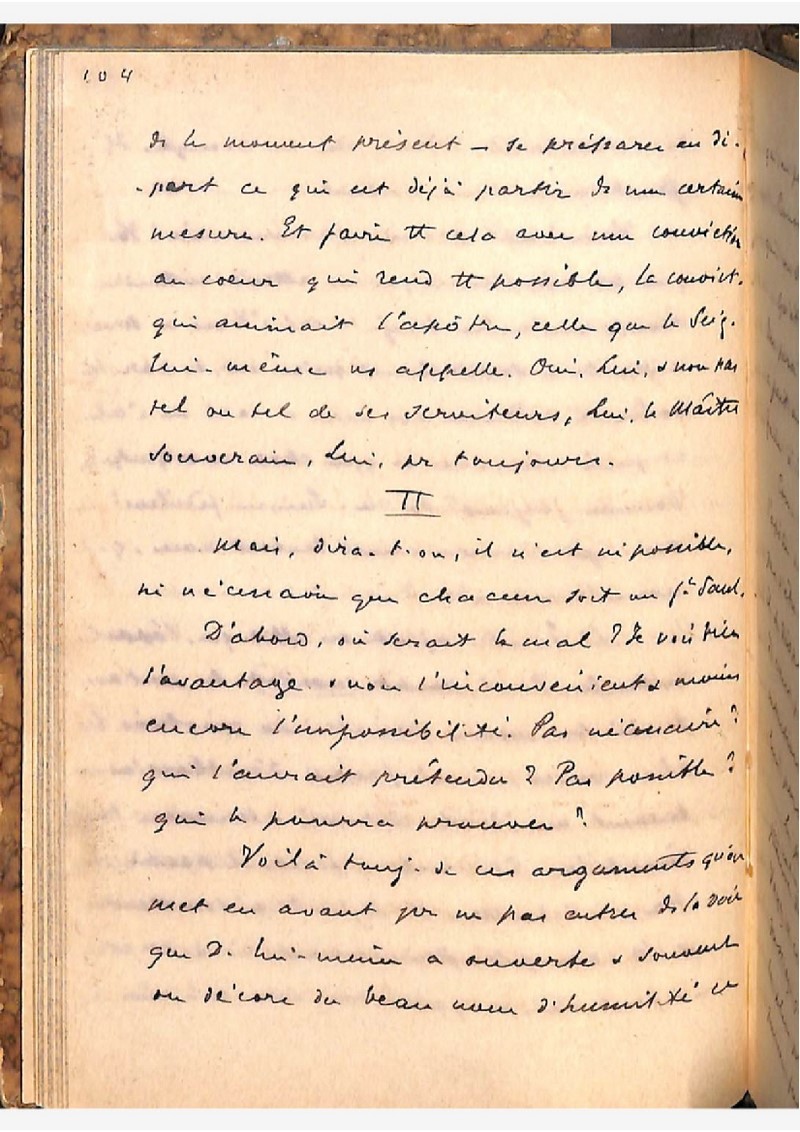 104
ds le moment présent — se préparer au dé-
-part ce qui est déjà partir ds une certaine
mesure. Et faire tt cela avec une conviction
au coeur qui rend tt possible, la convict.
qui animait l'apôtre, celle que le Seig.
lui-même ns appelle. Oui, Lui, & non pas
tel ou tel de ses serviteurs, Lui, le Maître
souverain, Lui, pr toujours.
II
Mais, dira-t-on, il n'est ni possible,
ni nécessaire que chacun soit un St Paul.
D'abord, où serait le mal ? Je vois bien
l'avantage & non l'inconvénient & moins
encore l'impossibilité. Pas nécessaire ?
qui l'aurait prétendu ? Pas possible ?
qui le pourra prouver ?
Voilà touj. de ces arguments qu'on
met en avant pr ne pas entrer ds la voie
que D. lui-même a ouverte & souvent
on décore du beau nom d'humilité ce